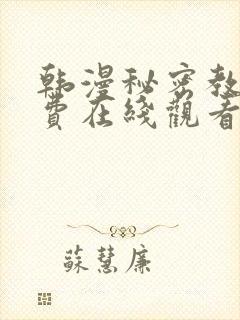 韩漫秘密教
費在綫觀看
蘇慧廉